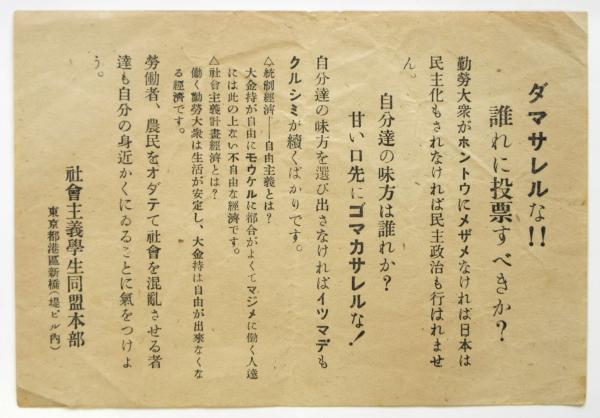 ダマサレルな!!
誰れに投票すべきか?
勤勞大衆がホントウにメザメなければ日本は
民主化もされなければ民主政治も行はれませ
ん。
自分達の味方は誰れか?
甘い口先にゴマカサレルな!
自分達の味方を選び出さなければイツマデも
クルシミが續くばかりです。
△統制經濟──自由主義とは?
大金持が自由にモウケルに都合がよくてマジメに働く人達
には此の上ない不自由な經濟です。
△社會主義計畫經濟とは?
働く勤勞大衆は生活が安定し、大金持は自由が出來なくな
る經濟です。
勞働者、農民をオダテて社會を混亂させる者
達も自分の身近かくにゐることに氣をつけよ
う。
社會主義學生同盟本部
東京都港區新橋(堤ビル內)